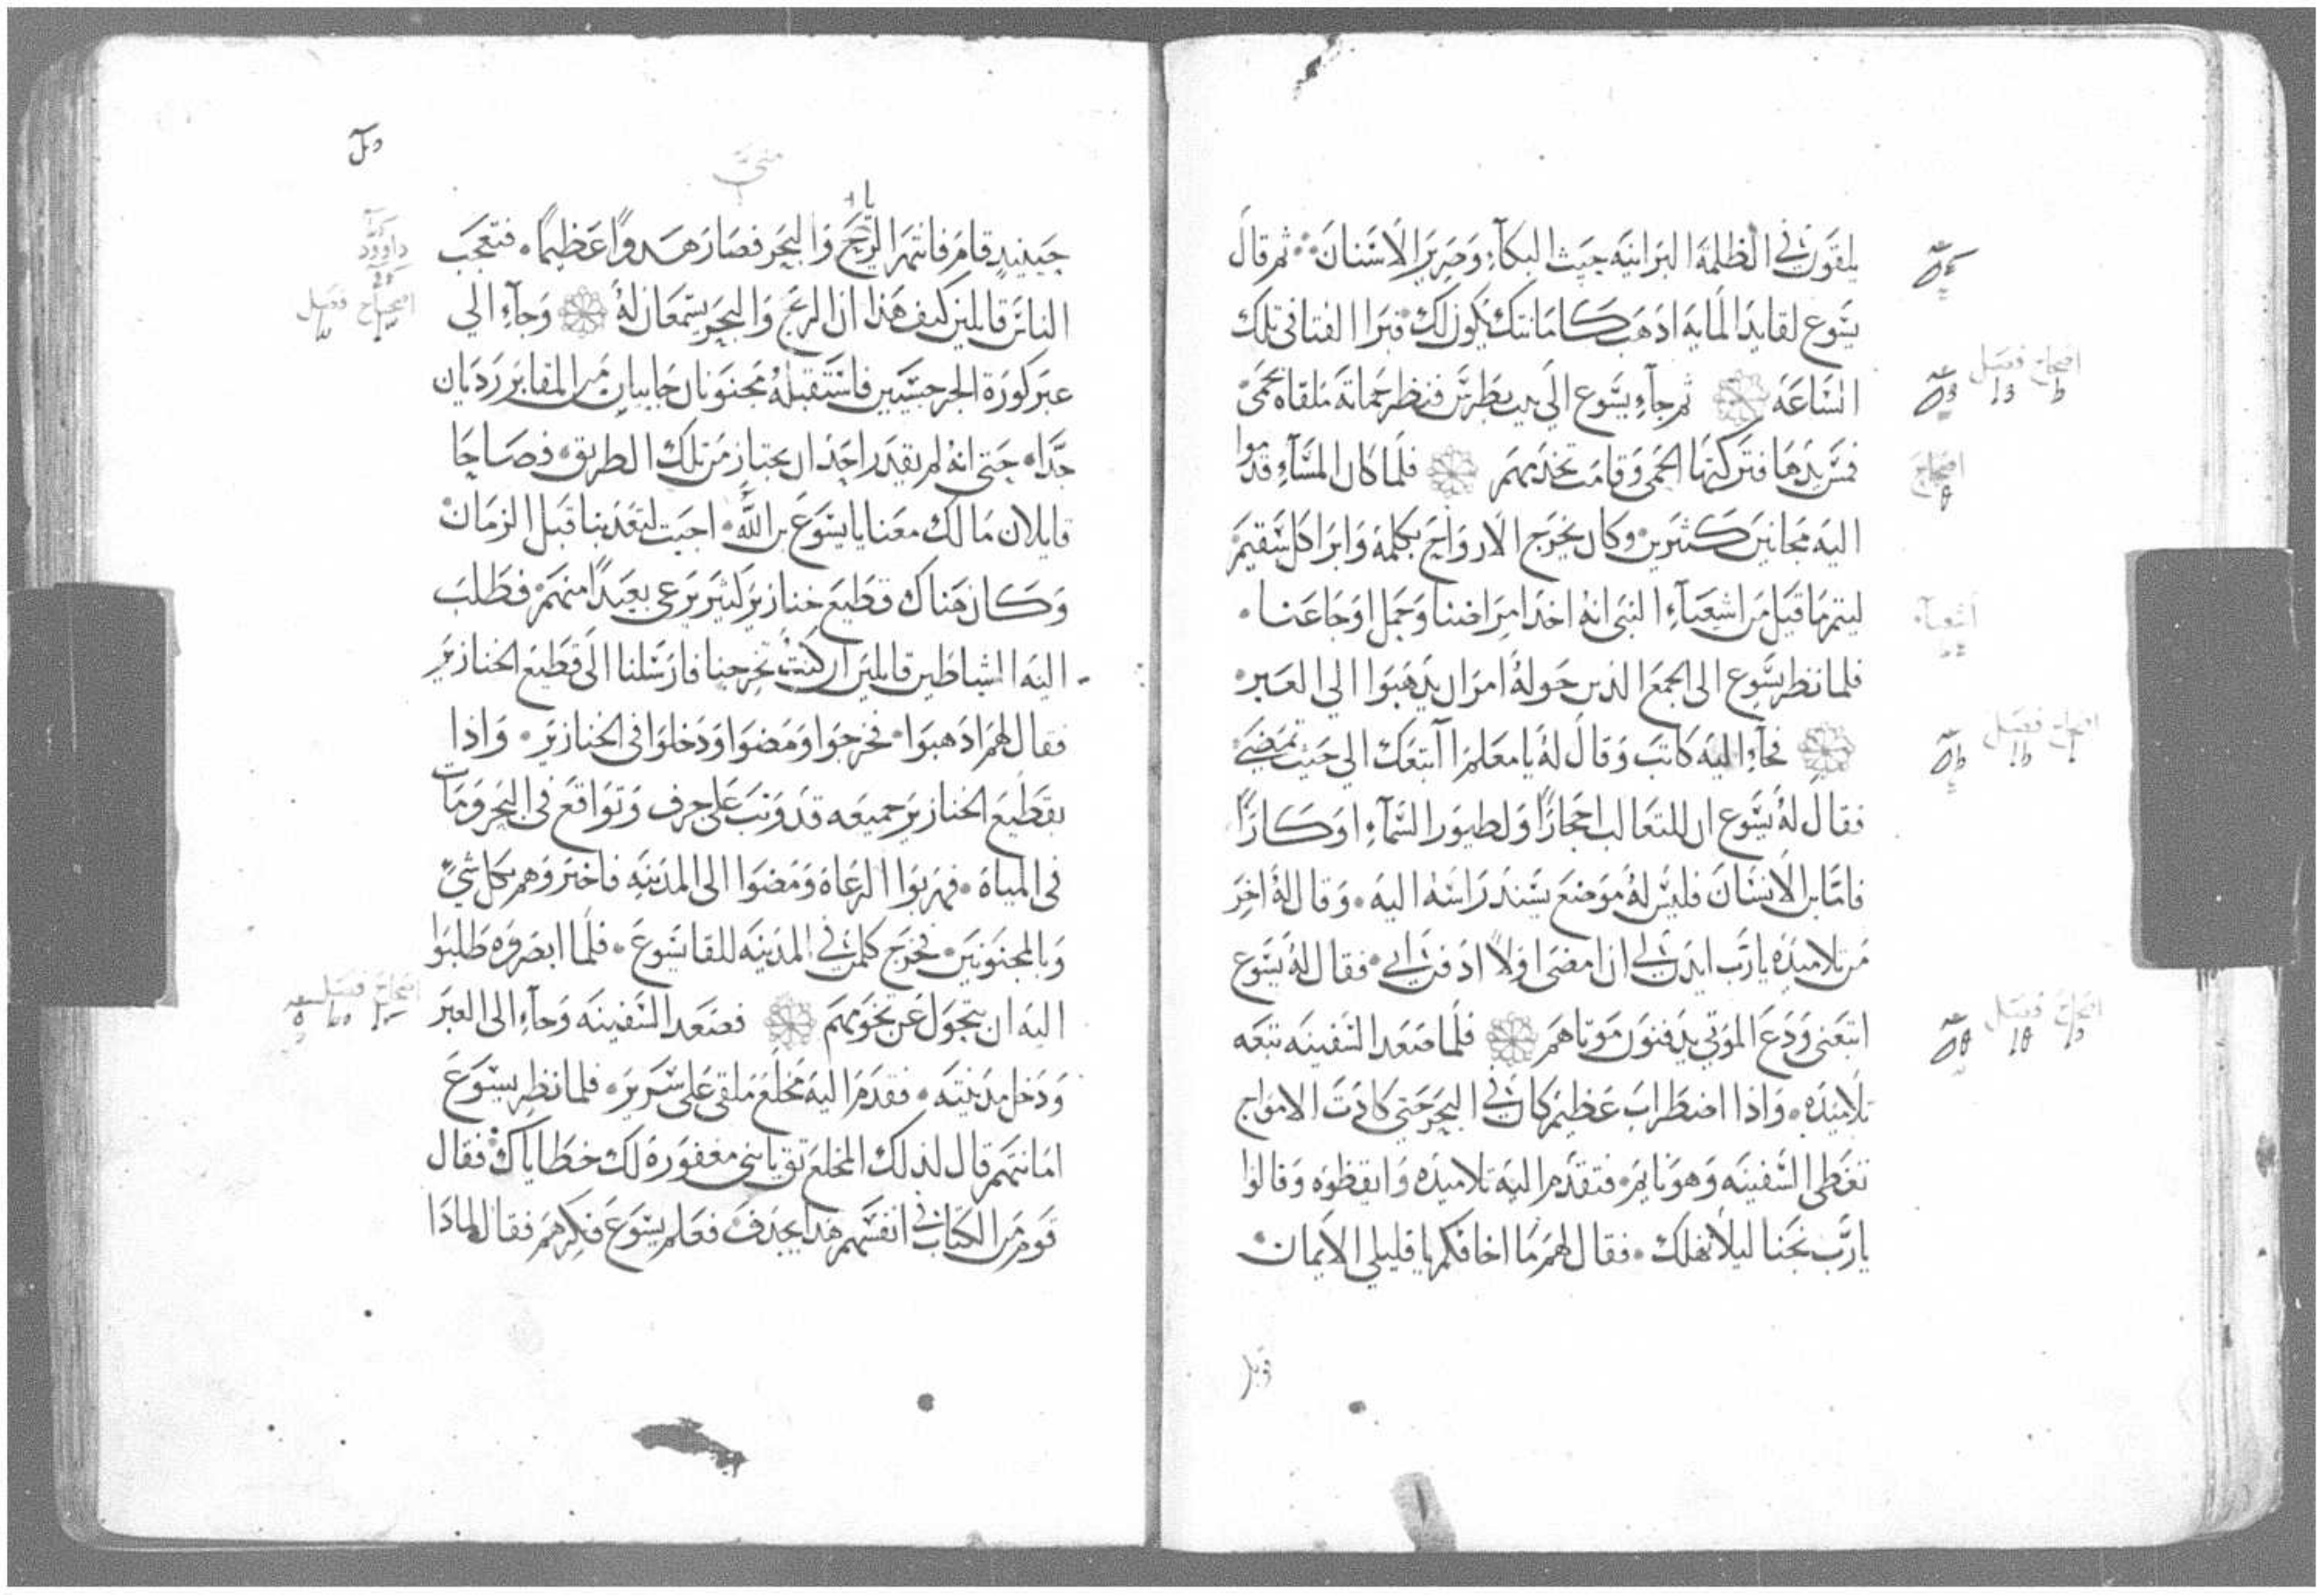 يلقون في الظلمة البرانيه حيث البكآء وصرير الاسنان ثم قال
يسوع لقايد المايه اذهب كامانتك يكون لك فبرا الفتا في تلك
الساعه ثم جآء يسوع الى بيت بطرس فنظر حماته ملقاه بحمى
فمس يدها فتركتها الحمى وقامت تخدمهم فلما كان المسآء قدموا
اليه مجانين كثيرين وكان يخرج الارواح بكلمه وابرا كل سقيم
ليتم ما قيل من اشعيآء النبي انه اخذ امراضنا وحمل اوجاعنا
فلما نظر يسوع الى الجمع الذين حوله امر ان يذهبوا الى العبر
فجآء اليه كاتب وقال له يا معلم اتبعك الى حيث تمضي
فقال له يسوع ان للتعالب احجارًا ولطيور السمآء اوكارًا
فاما بن الانسان فليس له موضع يسند راسه اليه وقال له اخر
من تلاميذه يا رب ايذن لي ان امضي اولاً ادفن ابي فقال له يسوع
اتبعني ودع الموتي يدفنون موتاهم فلما صعد السفينه تبعه
تلاميذه واذا اضطراب عظيم كان في البحر حتى كادت الامواج
تغطي السفينه وهو نايم فتقدم اليه تلاميذه وايقظوه وقالوا
يا رب نجنا ليلا نهلك فقال لهم ما اخافكم يا قليلي الايمان
اصحاح فصل
اصحاح
اشعيآء
اصحاح فصل
اصحاح فصل
متى
حينيذ قام فانتهر الريح والبحر فصار هدوًا عظيمًا فتعجب
الناس قايلين كيف هذا ان الريح والبحر يسمعان له وجآء الي
عبر كورة الجرجسيين فاستقبله مجنونان جاييان من المقابر رديان
جدًا حتى انه لم يقدر احد ان يجتاز من تلك الطريق فصاحا
قايلان ما لك معنا يا يسوع بن الله اجيت لتعذبنا قبل الزمان
وكان هناك قطيع خنازير كثير يرعى بعيدًا منهم فطلب
اليه الشياطين قايلين ان كنت تخرجنا فارسلنا الى قطيع الخنازير
فقال لهم اذهبوا فخرجوا ومضوا ودخلوا في الخنازير واذا
بقطيع الخنازير جميعه قد وثب على جرف وتواقع في البحر ومات
في المياه فهربوا الرعاة ومضوا الى المدينه فاخبروهم بكل شي
وبالمجنونين فخرج كلمن في المدينه للقا يسوع فلما ابصروه طلبوا
اليه ان يتحول عن تخومهم فصعد السفينه وجآء الى العبر
ودخل مدينته فقدم اليه مخلع ملقى على سرير فلما نظر يسوع
امانتهم قال لذلك المخلع ثق يا بني مغفورة لك خطاياك فقال
قوم من الكتاب في انفسهم هذا يجدف فعلم يسوع فكرهم فقال لماذا
داوود
اصحاح فصل
اصحاح فصل